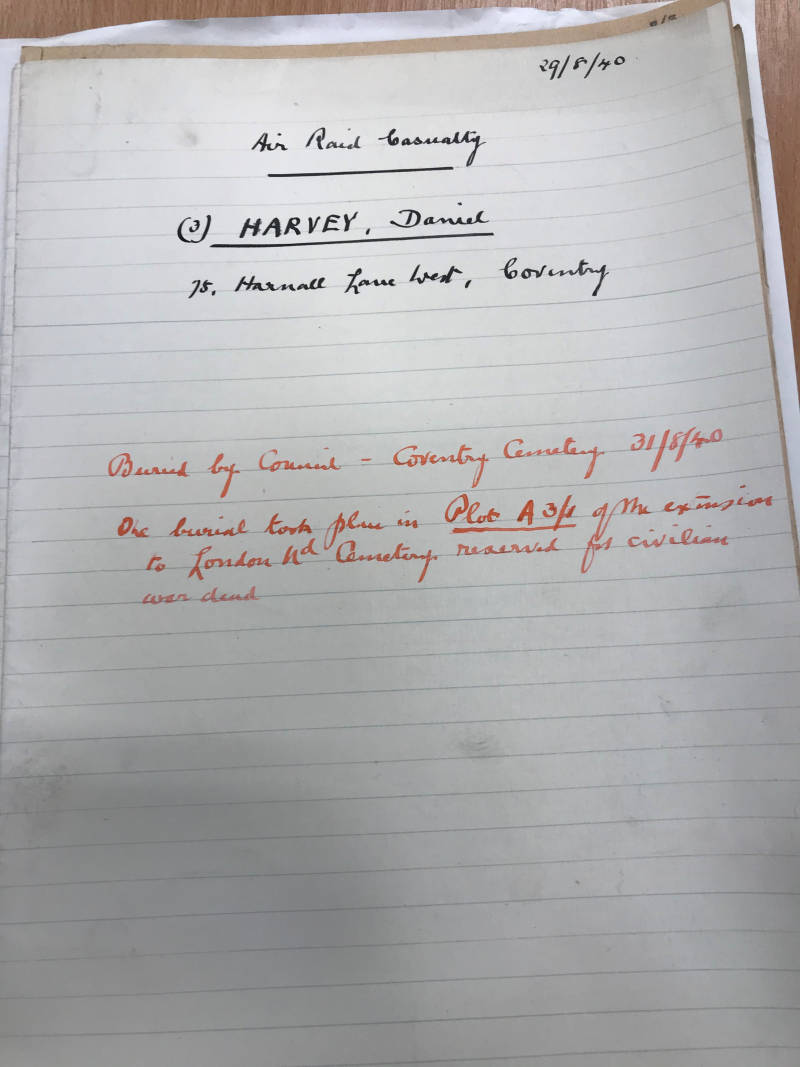 29/8/40
Air Raid Casualty
(3) HARVEY, Daniel
75, Harnall Lane West, Coventry
Buried by Council - Coventry Cemetery 31/8/40
The burial took place in Plot A 3/1 of the extension
to London Rd Cemetery reserved for civilian
war dead